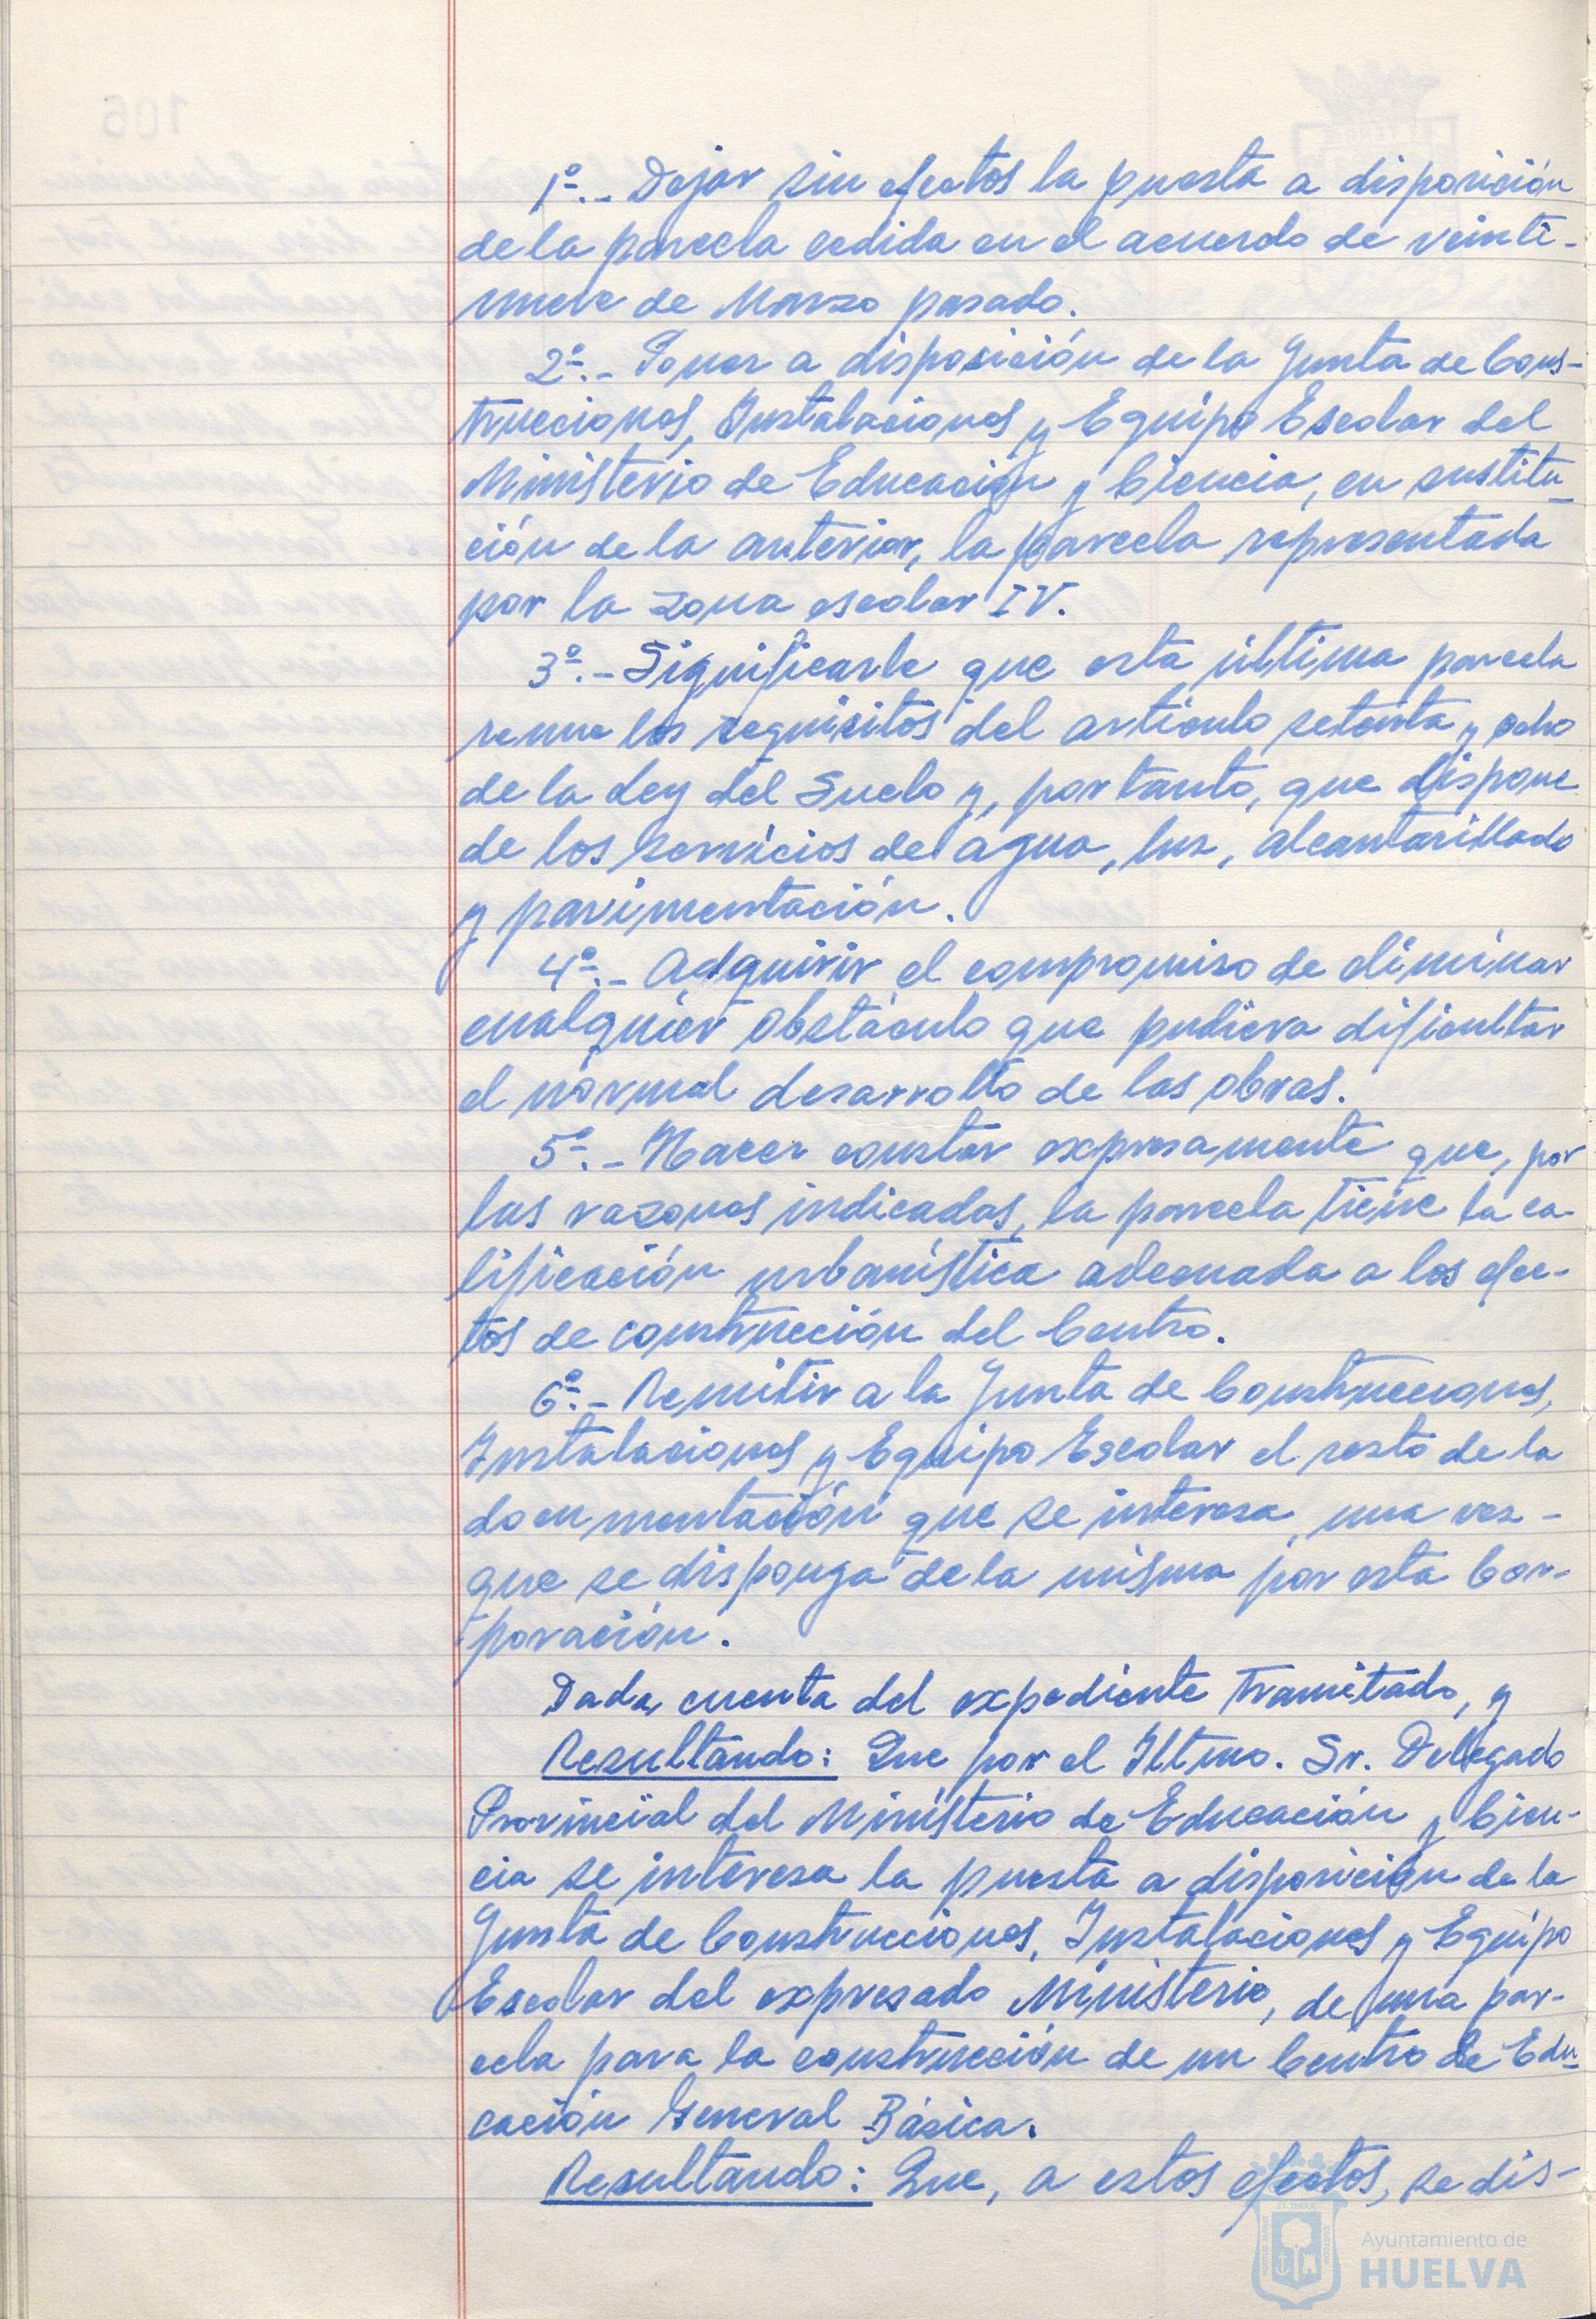 1º.- Dejar sin efectos la puesta a disposición
de la parcela cedida en el acuerdo de veinti-
nueve de Marzo pasado.
2º.- Poner a disposición de la Junta de Cons-
trucciones, Instalaciones y Equipo Escolar del
Ministerio de Educación y Ciencia, en sustitu-
ción de la anterior, la parcela representada
por la zona escolar IV.
3º.- Significarle que esta última parcela
reune los requisitos del artículo setenta y ocho
de la Ley del Suelo y, por tanto, que dispone
de los servicios de agua, luz, alcantarillado
y pavimentación.
4º.- Adquirir el compromiso de eliminar
cualquier obstáculo que pudiera dificultar
el normal desarrollo de las obras.
5º.- Hacer constar expresamente que, por
las razones indicadas, la parcela tiene la ca-
lificación urbanística adecuada a los efec-
tos de construcción del Centro.
6º.- Remitir a la Junta de Construcciones,
Instalaciones y Equipo Escolar el resto de la
documentación que se interesa, una vez-
que se disponga de la misma por esta Cor-
poración.
Dada cuenta del expediente tramitado, y
Resultando: Que por el Iltmo. Sr. Delegado
Provincial del Ministerio de Educación y Cien-
cia se interesa la puesta a disposición de la
Junta de Construcciones, Instalaciones y Equipo
Escolar del expresado Ministerio, de una par-
cela para la construcción de un Centro de Edu-
cación General Básica.
Resultando: Que, a estos efectos, se dis-
Ayuntamiento de
HUELVA